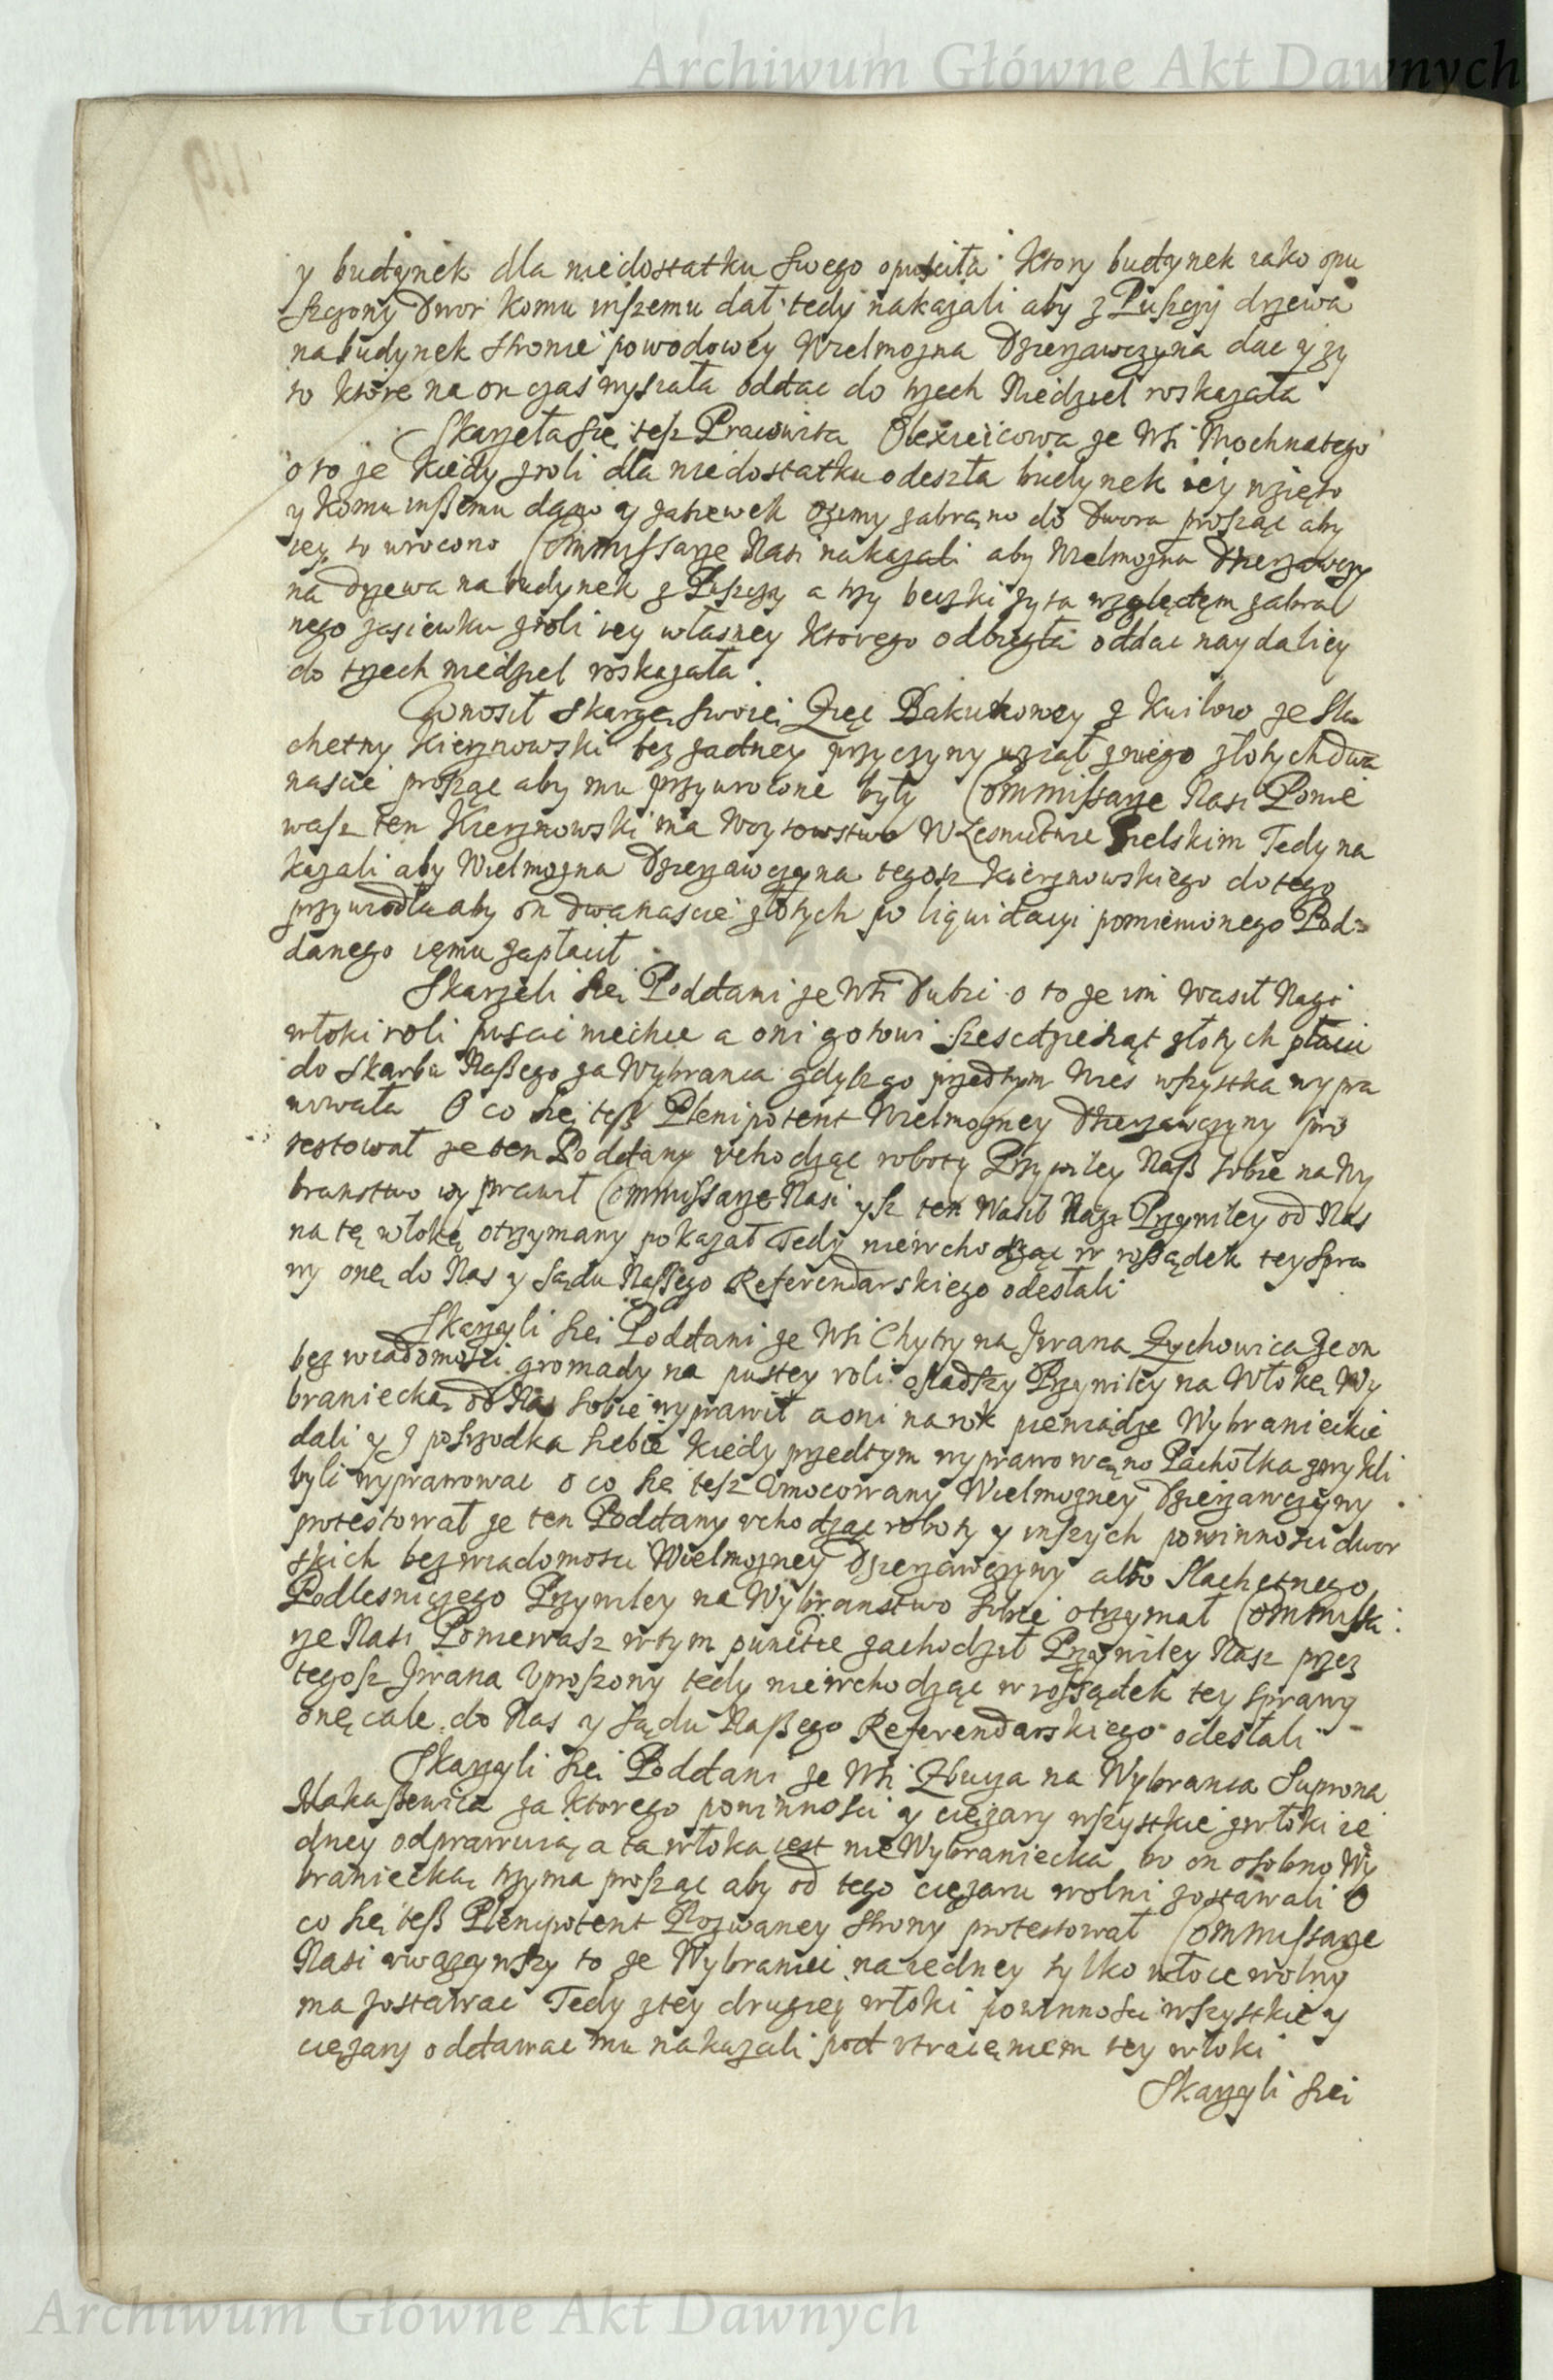 Archiwum Główne Akt Dawnych
y budynek dla niedostatku swego opuściła Ktory budynek iako opu
szczony Dwor komu inszemu dał tedy nakazali aby z Puszczy drzewa
na budynek stronie powodowey Wielmożna Dzierżawczyna dac y ży
to ktore na on czas wysiała oddac do trzech Niedziel roskazała
Skarżeła się tesz Pracowita Olexieicowa ze Wsi Mochnatego
o to że kiedy z roli dla niedostatku odeszła budynek iey wzięto
y komu inszemu dano y zasiewek Ozimy zabrano do Dwora prosząc aby
iey to wrocono Commissarze Nasi nakazali aby Wielmożna Dzierżawczy
na drzewa na budynek z Puszczy a trzy beczki żyta względem zabra
nego zasiewku z roli iey własney ktorego odbiegła oddac naydaliey
do trzech niedziel roskazała
Wnosił skargę swoię Zięć Bakunowey z Kuilow że Szla
chetny Kierznowski bez żadney przyczyny wziął z niego złotych dwa
nascie prosząc aby mu przywrocone były Commissarze Nasi Ponie
wasz ten Kierznowski ma Woytowstwo W Lesnictwie Bielskim Tedy na
kazali aby Wielmożna Dzierżawczyna tegosz Kierznowskiego do tego
przywiodła aby on dwanascie złotych po liquidacyi pomienionego Pod=
danego iemu zapłacił
Skarżeli się Poddani ze Wsi Dubi o to że im Wasil Nagi
włoki roli puscic niechce a oni gotowi szescdziesiąt złotych płacic
do skarbu Naszego za Wybranca gdysz go przedtym Wies wszystka wypra
wowała O co się tesz Plenipotent Wielmożney Dzierżawczyny pro
testował że ten Poddany uchodząc roboty Przywiley Nasz sobie na Wy
branstwo wyprawił Commissarze Nasi ysz ten Wasil Nagi Przywiley od Nas
na tę włokę otrzymany pokazał Tedy niewchodząc w rossądek tey spra
wy onę do Nas y Sądu Naszego Referendarskiego odesłali
Skarżyli się Poddani ze Wsi Chytry na Iwana Zychowica że on
bez wiadomości gromady na pustey roli osiadszy Przywiley na Włokę Wy
braniecką od Nas sobie wyprawił a oni na rok pieniądze Wybranieckie
dali y z poszrodka siebie kiedy przedtym wyprawowano Pachołka zwykli
byli wyprawowac O co się tesz Umocowany Wielmożney Dzierżawczyny
protestował że ten Poddany uchodząc roboty y inszych powinności dwor
skich bez wiadomosci Wielmożney Dzierżawczyny albo Slachetnego
Podlesniczego Przywiley na Wybranstwo sobie otrzymał Commissa
rze Nasi Poniewasz w tym puncie zachodził Przywiley Nasz przez
tegosz Iwana Uproszony tedy niewchodząc w rossądek tey sprawy
onę cale do Nas y Sądu Naszego Referendarskiego odesłali
Skarżyli się Poddani ze Wsi Zbucza na Wybranca Suprona
Makasewica za ktorego powinności y ciężary wszystkie z włoki ie
dney odprawuią a ta włoka iest nie Wybraniecka bo on osobno Wy
braniecką trzyma prosząc aby od tego ciężaru wolni zostawali O
co się tesz Plenipotent Pozwaney strony protestował Commissarze
Nasi uważywszy to że Wybraniec na iedney tylko włoce wolny
ma zostawac Tedy z tey drugiey włoki powinności wszystkie y
ciężary oddawac mu nakazali pod utraceniem tey włoki
Skarżyli się
Archiwum Główne Akt Dawnych